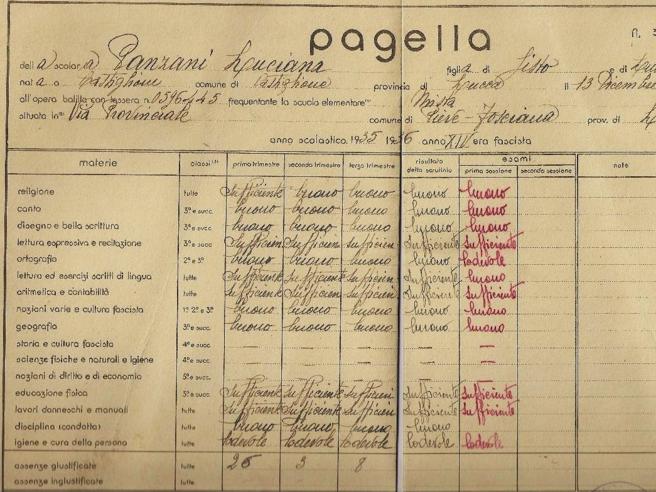 pagella
N.
dell a scolar a Panzani Luciana figlia di Sisto e di
nat a a Castiglione comune di Castiglione provincia di Lucca il 13 Dicembre
all'opera balilla con tessera n. frequentante la scuola elementare Mista
situata in Via Provinciale comune di Pieve-Fosciana prov. di
anno scolastico 1935 1936 anno XIV era fascista
materie classi primo trimestre secondo trimestre terzo trimestre risultato dello scrutinio esami prima sessione seconda sessione note
religione tutte Sufficiente buono buono buono buono
canto 3ª e succ. buono buono buono buono buono
disegno e bella scrittura tutte buono buono buono buono buono
lettura espressiva e recitazione 3ª e succ. Sufficien Sufficiente Sufficien Sufficiente Sufficiente
ortografia 2ª e 3ª buono buono buono buono lodevole
lettura ed esercizi scritti di lingua tutte Sufficiente Sufficiente Sufficien Sufficiente buono
aritmetica e contabilità tutte Sufficiente Sufficiente Sufficien Sufficiente Sufficiente
nozioni varie e cultura fascista 1ª 2ª e 3ª buono buono buono buono buono
geografia 3ª e succ. buono buono buono buono buono
storia e cultura fascista 4ª e succ. — — — — —
scienze fisiche e naturali e igiene 4ª e succ. — — — — —
nozioni di diritto e di economia 5ª e succ.
educazione fisica tutte Sufficiente Sufficiente Sufficien Sufficiente Sufficiente
lavori donneschi e manuali tutte Sufficiente Sufficiente Sufficien Sufficiente Sufficiente
disciplina (condotta) tutte buono buono buono buono
igiene e cura della persona tutte lodevole lodevole lodevole lodevole lodevole
assenze giustificate tutte 26 3 8
assenze ingiustificate tutte